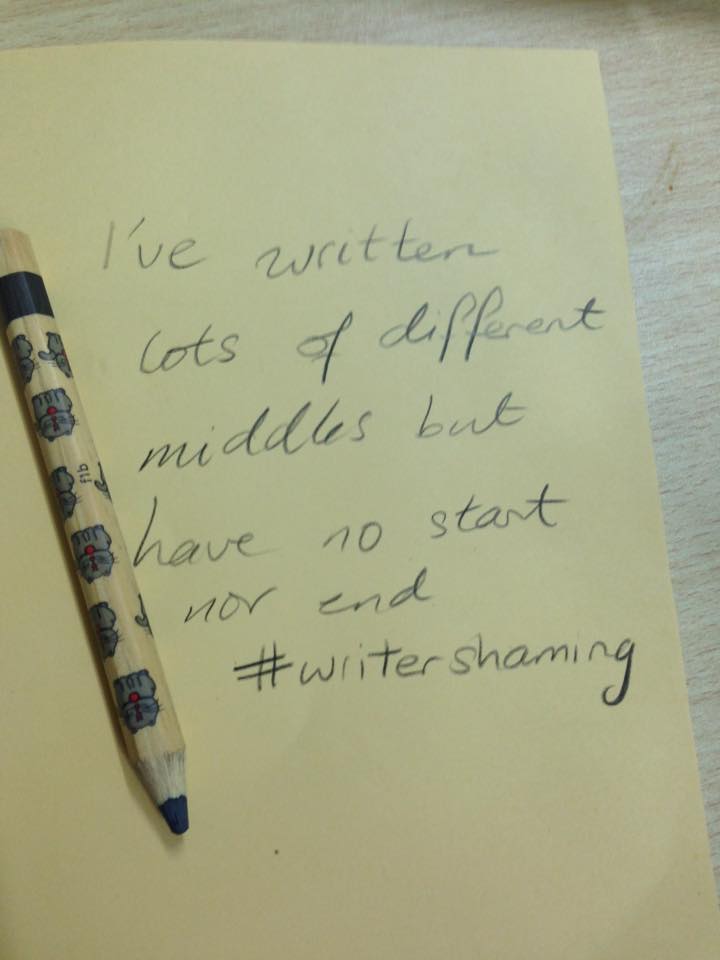 I've written
lots of different
middles but
have no start
nor end
#writershaming